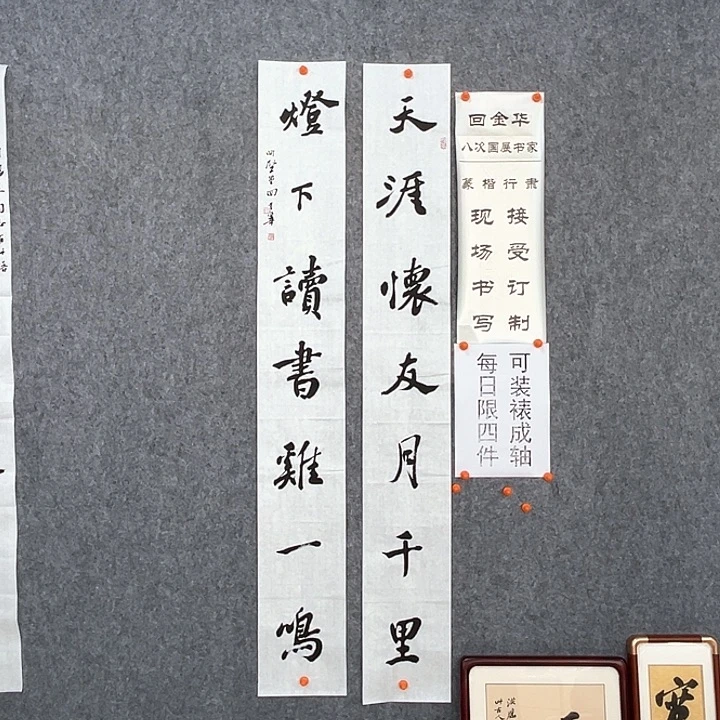 回金华
八次国展书家
篆楷行隶
接受订制
现场书写
可装裱成轴
每日限四件
天涯懷友月千里
燈下讀書雞一鳴